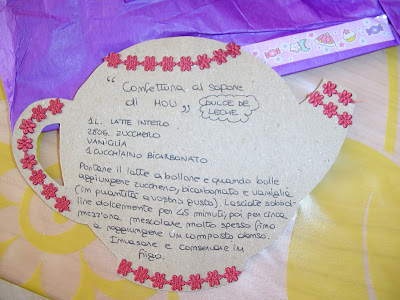 "Confettura al sapore
di MOU"
DULCE DE
LECHE
1L. LATTE INTERO
280G. ZUCCHERO
VANIGLIA
1 CUCCHIAINO BICARBONATO
Portare il latte a bollore e quando bolle
aggiungere zucchero, bicarbonato e vaniglia
(in quantità a vostro gusto). Lasciate sobbol-
lire dolcemente per 45 minuti, poi per circa
mezz'ora mescolare molto spesso fino
a raggiungere un composto denso.
Invasare e conservare in
frigo.